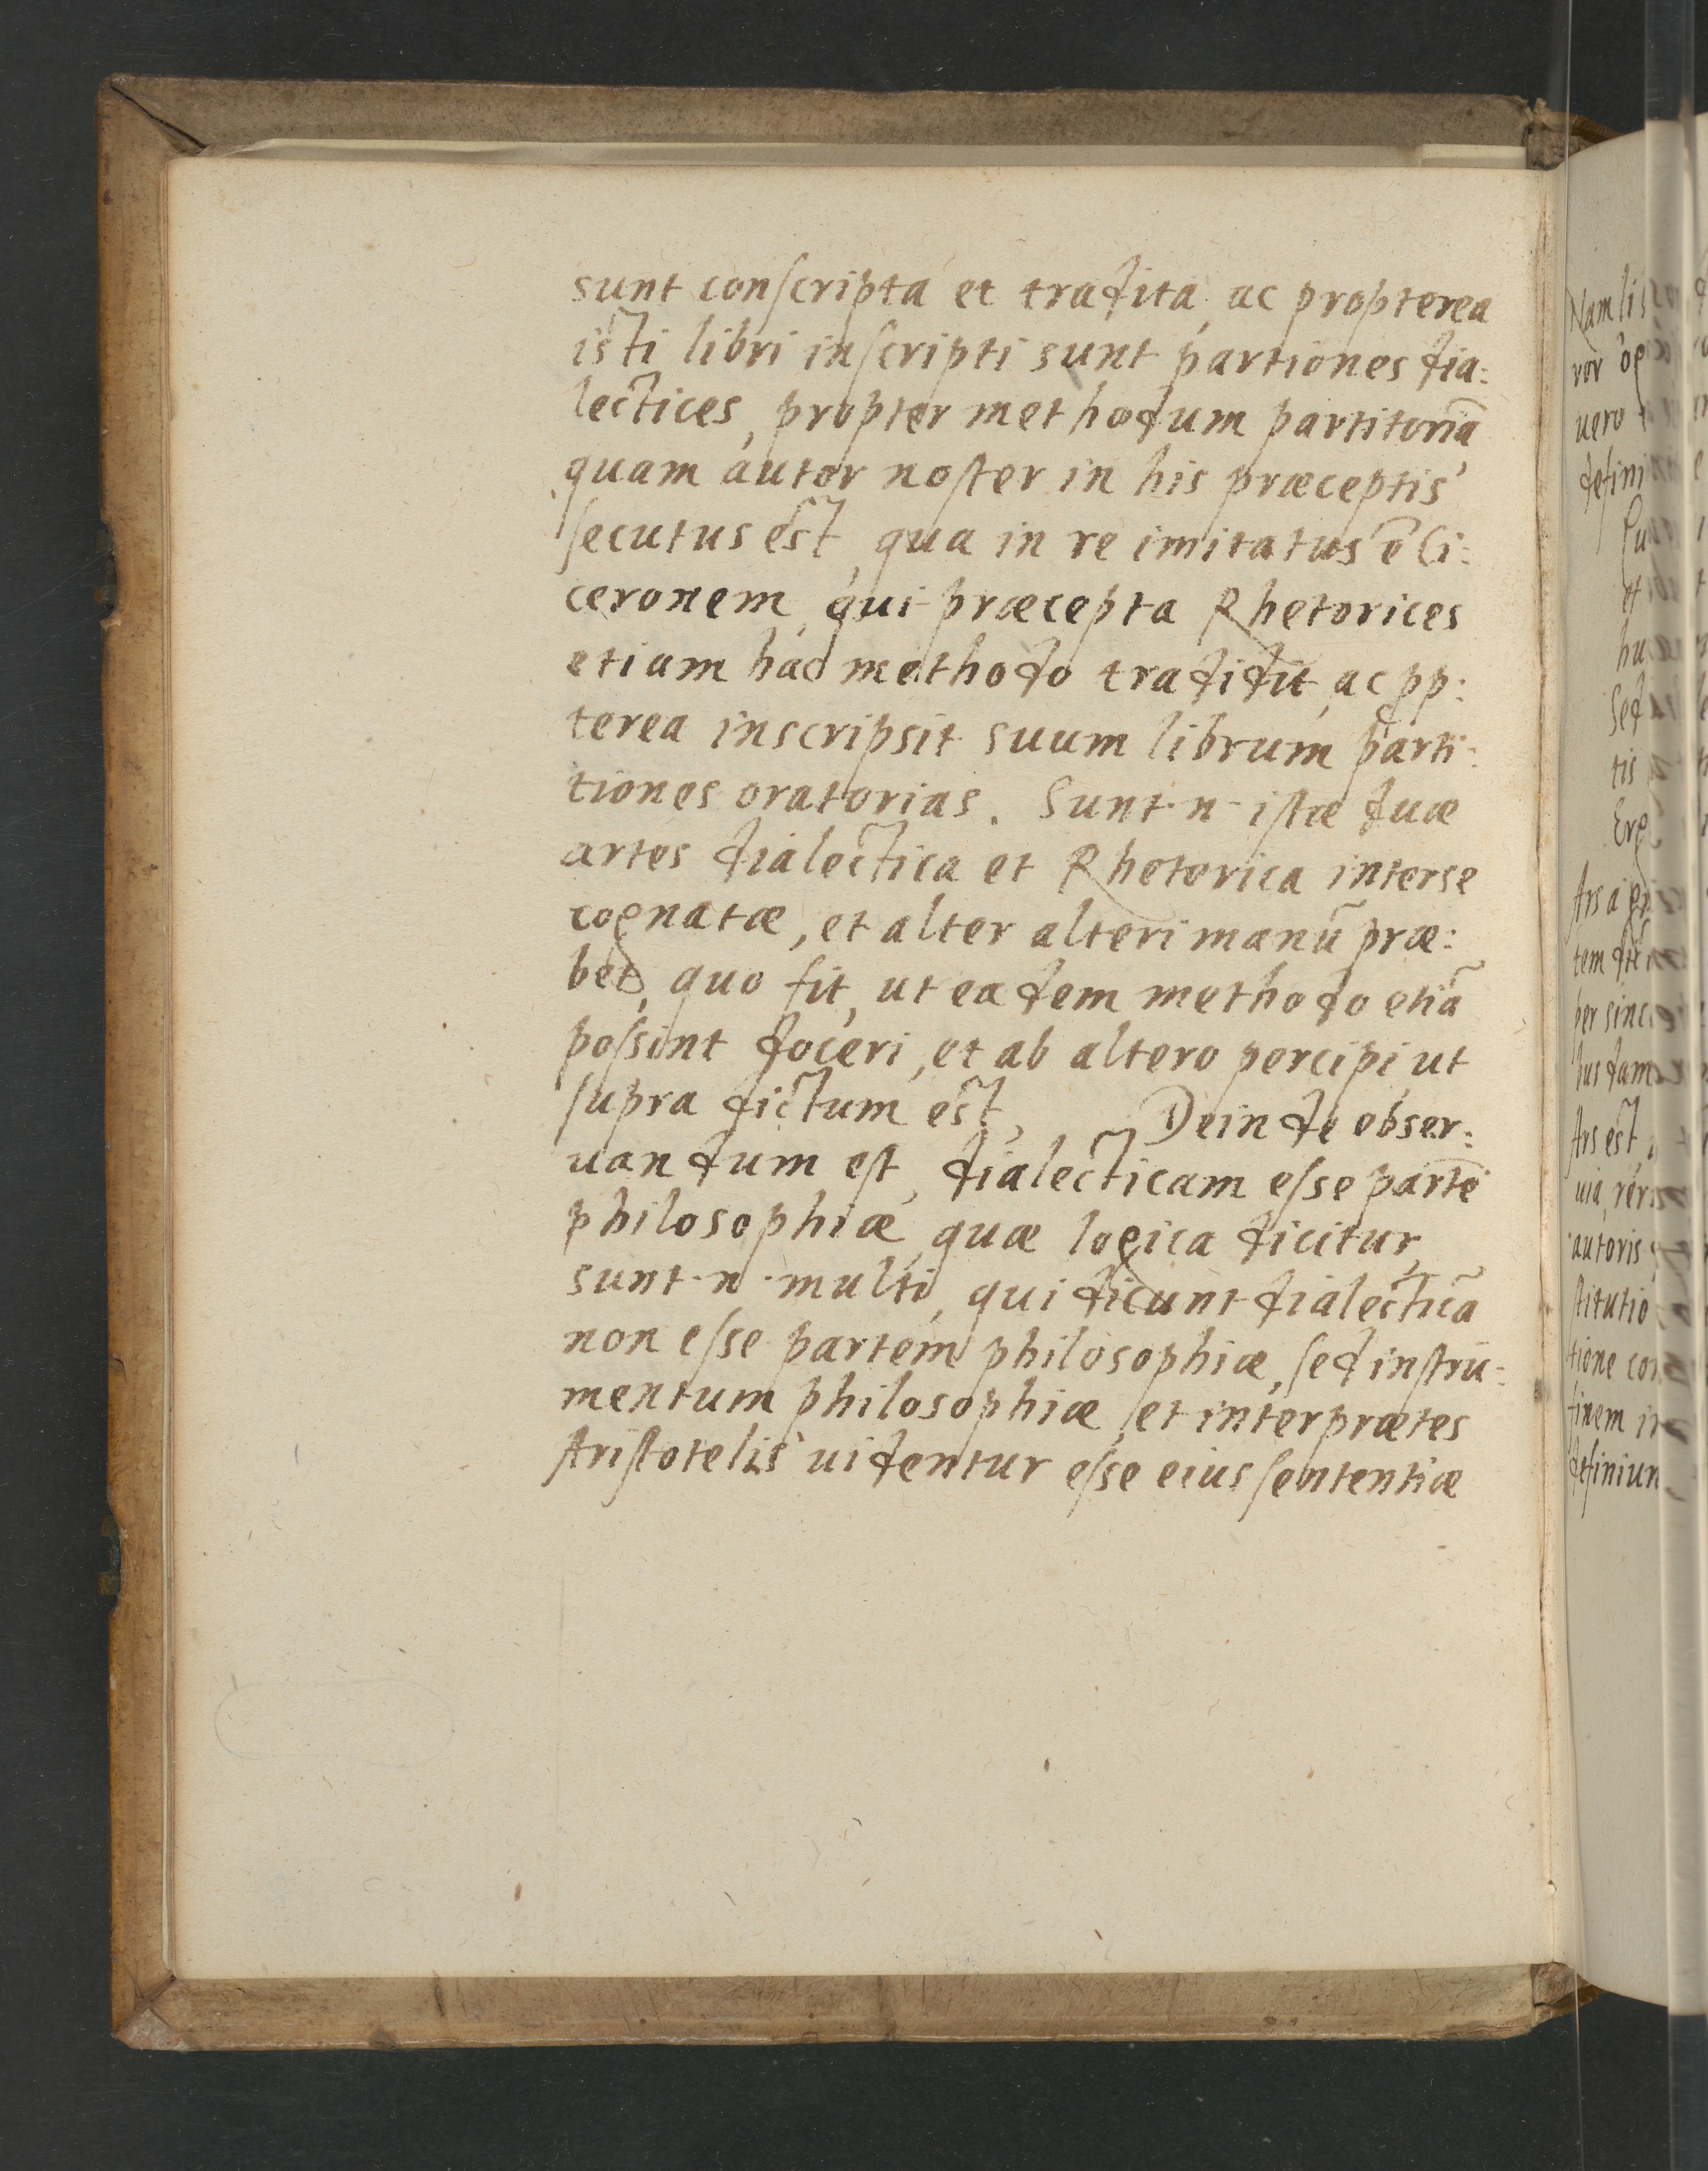 sunt conscripta et tradita, ac propterea
isti libri inscripti sunt partiones dia:
lectices, propter methodum partitoriā
quam autor noster in his præceptis
secutus est, qua in re imitatus ē Ci:
ceronem, qui præcepta Rhetorices
etiam hac methodo tradidit, ac pp:
terea inscripsit suum librum parti:
tiones oratorias. Sunt·n·istæ duæ
artes dialectica et Rhetorica inter se
cognatæ, et alter alteri manū præ:
bet, quo fit, ut eadem methodo etiā
possint doceri, et ab altero percipi, ut
supra dictum est, Deinde obser:
uandum est, dialecticam esse partē
philosophiæ, quæ logica dicitur,
sunt·n·multi, qui dicunt dialecticā
non esse partem philosophiæ, sed instru:
mentum philosophiæ, et interprætes
Aristotelis uidentur esse eius sententiæ
Nam lis
ror
uero
defini
et
hu
Sed
tis
Erg
Ars a
tem
per sinc
Ars est,
uia, rer
autoris
stitutio
tione con
finem in
definiun